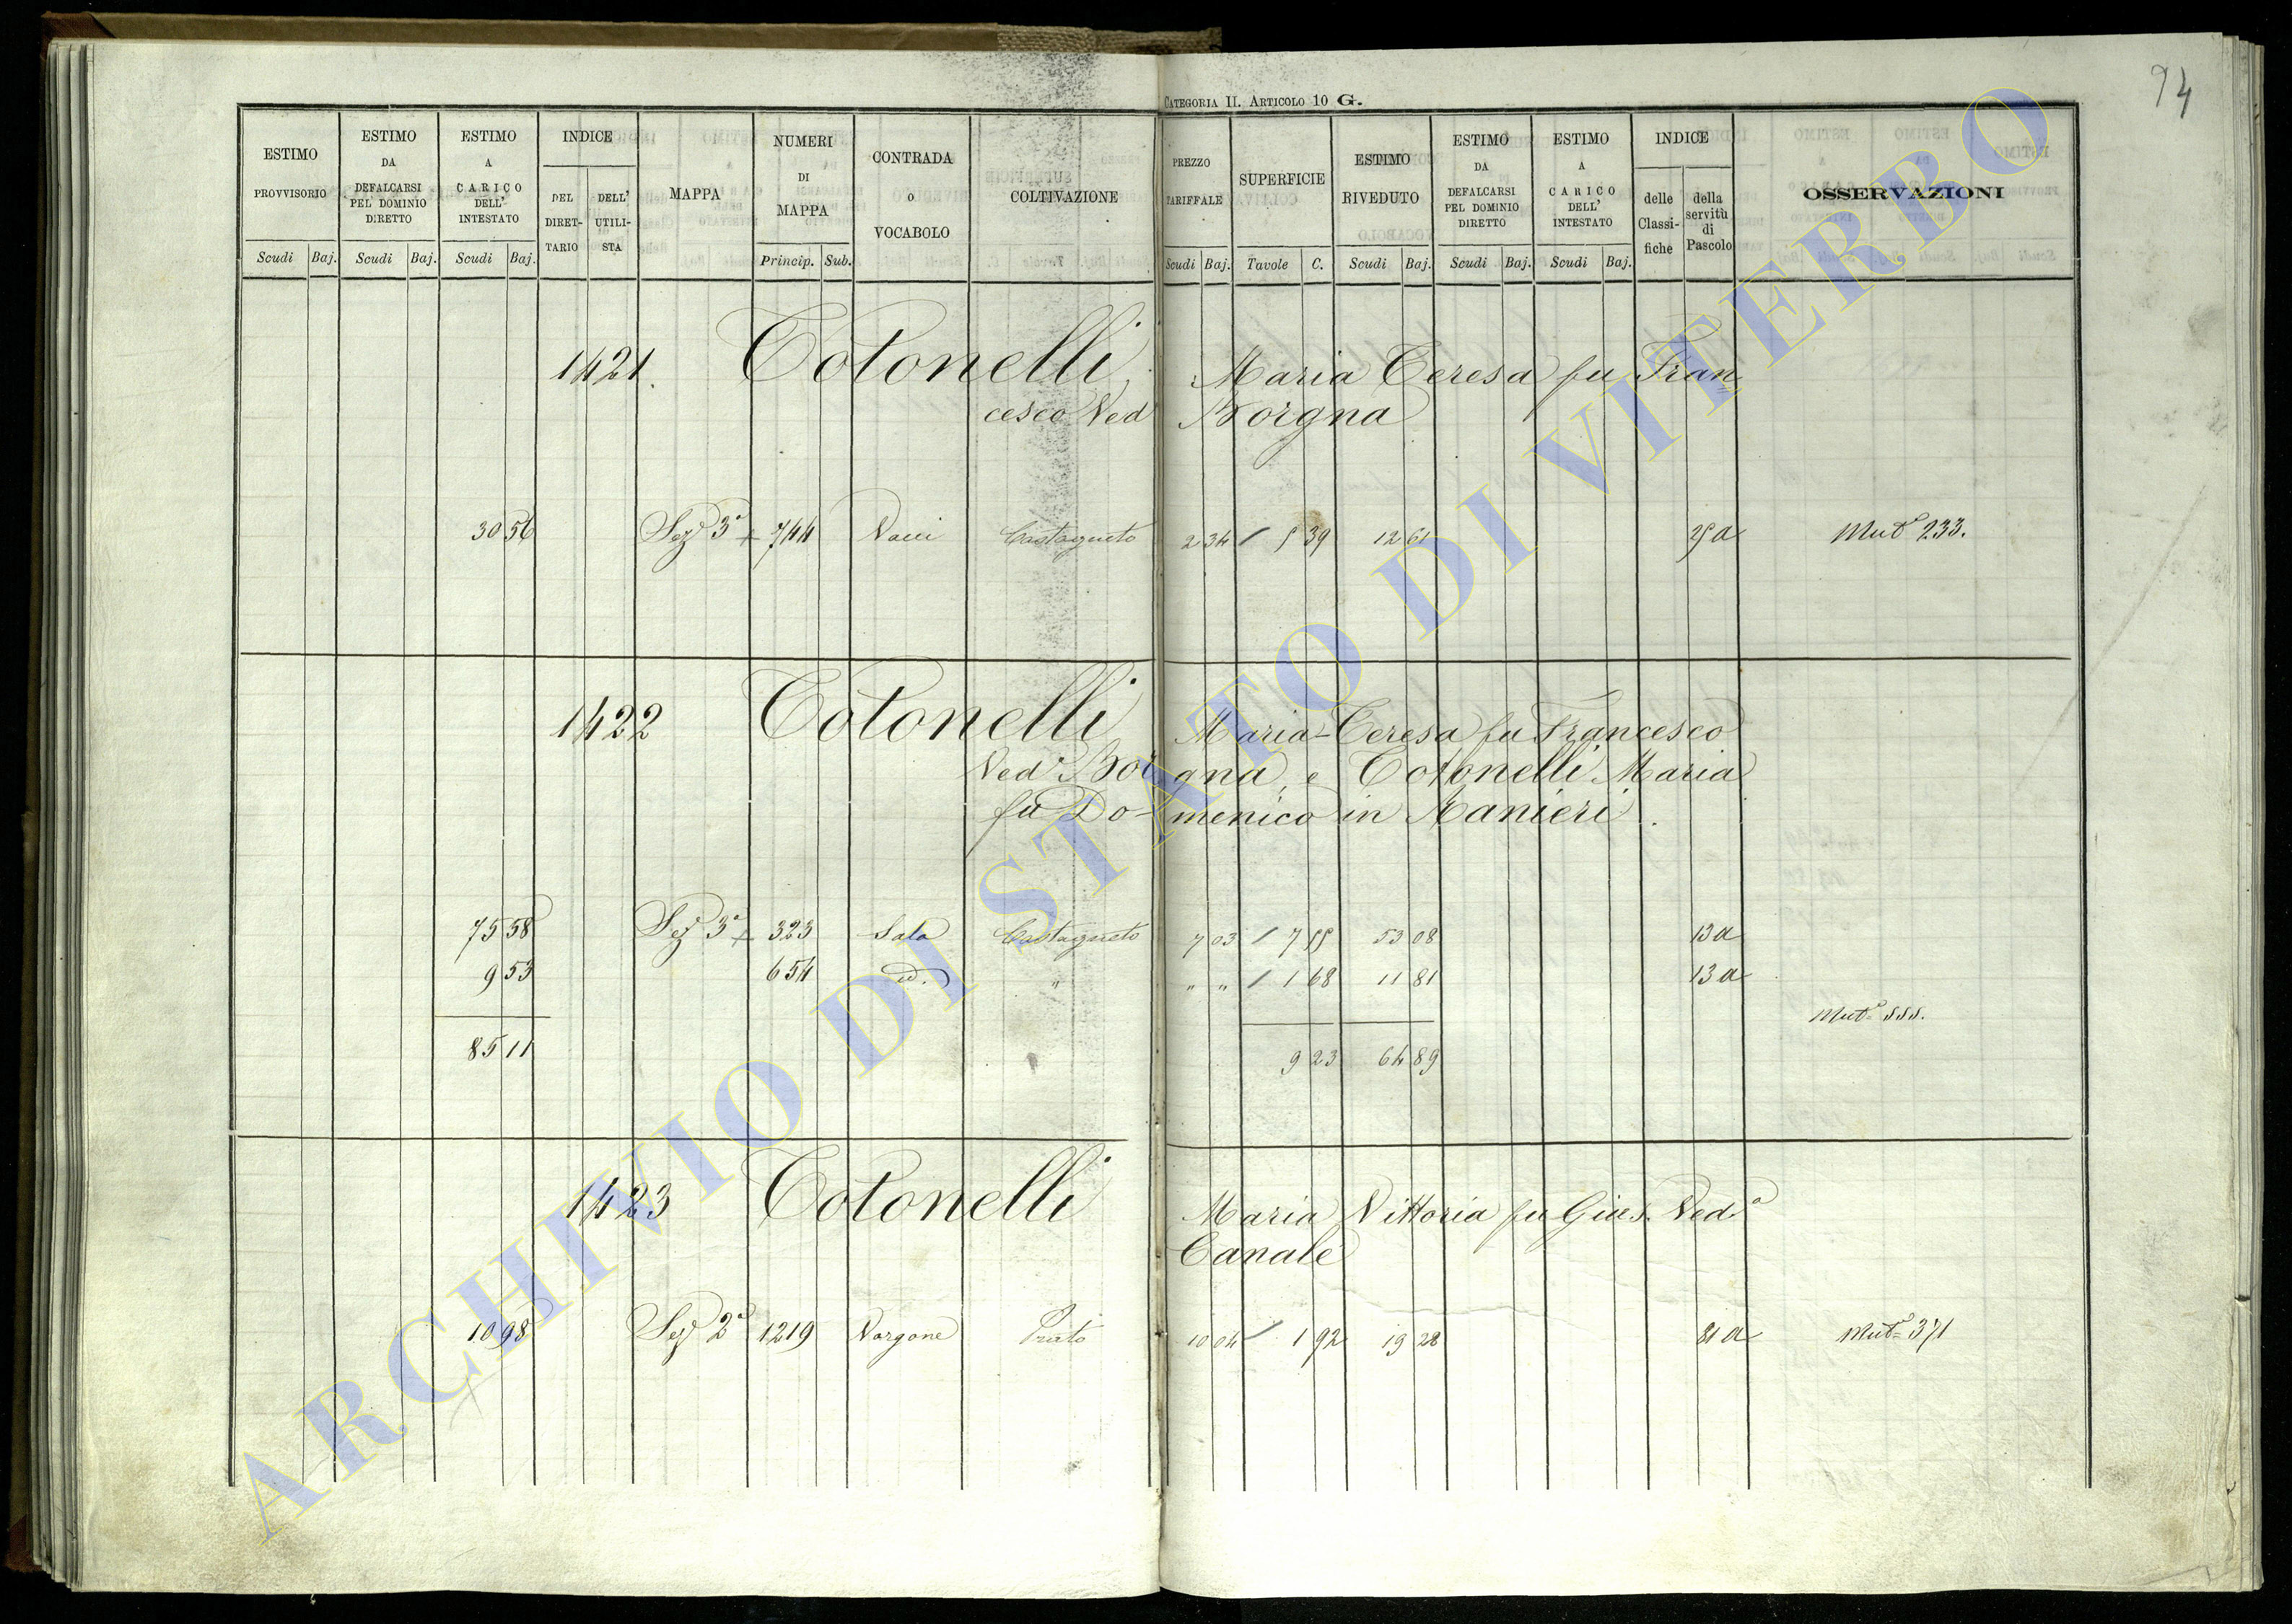 94
CATEGORIA II. ARTICOLO 10 G.
ESTIMO PROVVISORIO Scudi Baj.
ESTIMO DA DEFALCARSI PEL DOMINIO DIRETTO Scudi Baj.
ESTIMO A CARICO DELL' INTESTATO Scudi Baj.
INDICE DEL DIRET- TARIO DELL' UTILI- STA
MAPPA
NUMERI DI MAPPA Princip. Sub.
CONTRADA o VOCABOLO
COLTIVAZIONE
PREZZO TARIFFALE Scudi Baj.
SUPERFICIE Tavole C.
ESTIMO RIVEDUTO Scudi Baj.
ESTIMO DA DEFALCARSI PEL DOMINIO DIRETTO Scudi Baj.
ESTIMO A CARICO DELL' INTESTATO Scudi Baj.
INDICE delle Classi- fiche della servitù di Pascolo
OSSERVAZIONI
1421. Totonelli Maria Teresa fu Fran
cesco Ved Borgna
30 56 Sez 3ª + 744 Castagneto 2 34 / 5 39 12 61 25 a Mutª 233.
1422 Totonelli Maria-Teresa fu Francesco
Vedª Bor gna, e Totonelli Maria
fu Do- menico in Ranieri.
75 58 Sez 3ª + 323 Sala Castagneto 7 03 / 7 55 53 08 13 a
9 53 654 id. " " " / 1 68 11 81 13 a
Mutª 555.
85 11 9 23 64 89
1423 Totonelli Maria Vittoria fu Gius. Vedª
Canale
10 98 Sez 2ª 1219 Vorgone Prato 10 04 / 1 92 19 28 81 a Mutª 371
ARCHIVIO DI STATO DI VITERBO